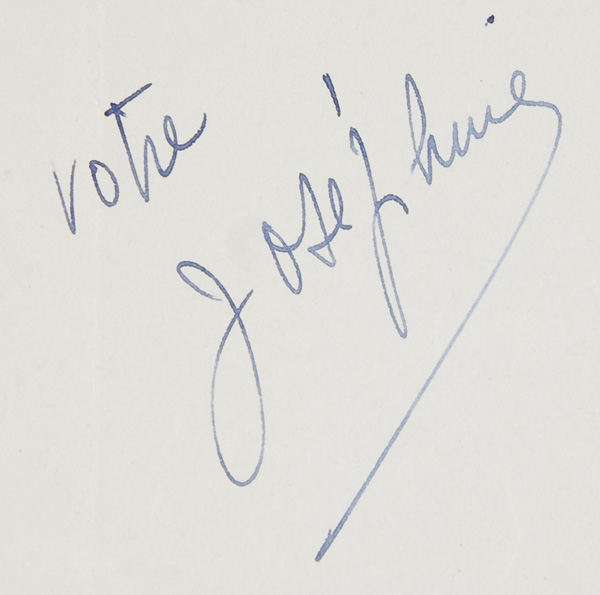 votre
Joséphine